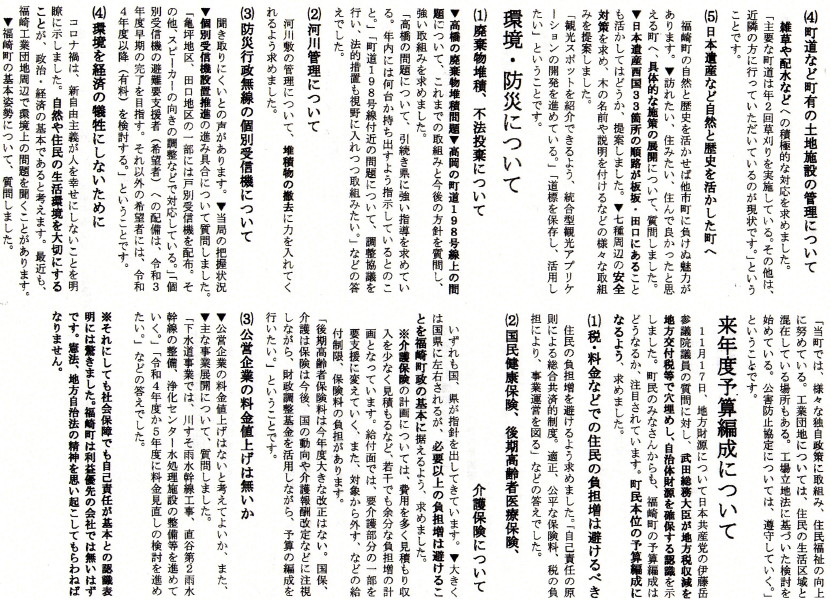 ⑷町道など町有の土地施設の管理について
雑草や配水などへの積極的な対応を求めました。
「主要な町道は年２回草刈りを実施している。その他は、
近隣の方に行っていただいているのが現状です。」という
ことです。
⑸日本遺産など自然と歴史を活かした町へ
福崎町の自然と歴史を活かせば他市町に負けぬ魅力が
あります。▼訪れたい、住みたい、住んで良かったと思
える町へ、具体的な施策の展開について、質問しました。
▼日本遺産西国３３箇所の順路が板坂・田口にあること
も活かしてはどうか、提案しました。▼七種周辺の安全
対策を求め、木の名前や説明を付けるなどの様々な取組
みを提案しました。
「観光スポットを紹介できるよう、統合型観光アプリケ
ーションの開発を進めている。」「道標を保存し、活用し
たい」ということです。
環境・防災について
⑴廃棄物堆積、不法投棄について
▼高橋の廃棄物堆積問題▼高岡の町道１９８号線上の問
題について、これまでの取組みと今後の方針を質問し、
強い取組みを求めました。
「高橋の問題について、引続き県に強い指導を求めてい
る。年内には何台か持ち出すよう指示しているとのこ
と。」「町道１９８号線付近の問題について、調整協議を
行い、法的措置も視野に入れつつ取組みたい。」などの答
えでした。
⑵河川管理について
河川敷の管理について、堆積物の撤去に力を入れてく
れるよう求めました。
⑶防災行政無線の個別受信機について
聞き取りにくいとの声があります。▼当局の把握状況
▼個別受信機設置推進の進み具合について質問しました。
「亀坪地区、田口地区の一部には戸別受信機を配布。そ
の他、スピーカーの向きの調整などで対応している。」「個
別受信機の避難要支援者（希望者）への配備は、令和３
年度早期の完了を目指す。それ以外の希望者には、令和
４年度以降（有料）を検討する。」ということです。
⑷環境を経済の犠牲にしないために
コロナ禍は、新自由主義が人を幸せにしないことを明
瞭に示しました。自然や住民の生活環境を大切にする
ことが、政治・経済の基本であると考えます。最近も、
福崎工業団地周辺で環境上の問題を聞くことがあります。
▼福崎町の基本姿勢について、質問しました。
「当町では、様々な独自政策に取組み、住民福祉の向上
に努めている。工業団地については、住民の生活区域と
混在している場所もある。工場立地法に基づいた検討を
始めている。公害防止協定については、遵守していく。」
ということです。
来年度予算編成について
１１月１７日、地方財源について日本共産党の伊藤岳
参議院議員の質問に対し、武田総務大臣が地方税収減を
地方交付税等で穴埋めし、自治体財源を確保する認識を示
しました。町民のみなさんからも、福崎町の予算編成は
どうなるか、注目されています。町民本位の予算編成に
なるよう、求めました。
⑴税・料金などでの住民の負担増は避けるべき
住民の負担増を避けるよう求めました。「自己責任の原
則による総合共済的制度。適正、公平な保険料、税の負
担により、事業運営を図る」などの答えでした。
⑵国民健康保険、後期高齢者医療保険、
介護保険について
いずれも国、県が指針を出してきています。▼大きく
は国県に左右されるが、必要以上の負担増は避けるこ
とを福崎町政の基本に据えるよう、求めました。
※介護保険の計画については、費用を多く見積もり収
入を少なく見積もるなど、若干でも余分な負担増の計
画となっています。給付面では、要介護部分の一部を
要支援に変えていく、また、対象から外す、などの給
付制限、保険料の負担があります。
「後期高齢者保険料は今年度大きな改正はない。国保、
介護は保険は今後、国の動向や介護報酬改定などに注視
しながら、財政調整基金を活用しながら、予算の編成を
行いたい。」ということです。
⑶公営企業の料金値上げは無いか
▼公営企業の料金値上げはないと考えてよいか、また、
▼主な事業展開について、質問しました。
「下水道事業では、川すそ雨水幹線工事、直谷第２雨水
幹線の整備、浄化センター水処理施設の整備等を進めて
いく。」「令和４年度から５年度に料金見直しの検討を進め
たい。」などの答えでした。
※それにしても社会保障でも自己責任が基本との認識表
明には驚きました。福崎町は利益優先の会社では無いはず
です。憲法、地方自治法の精神を思い起こしてもらわねば
なりません。